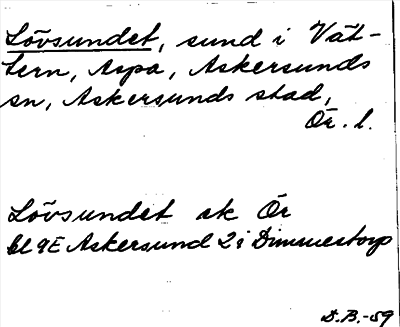 Lövsundet, sund i Vät-
tern, Aspa, Askersunds
sn, Askersunds stad,
Ör. l.
Lövsundet ek Ör
bl 9E Askersund 2 i Dimmestorp
D.B.-59